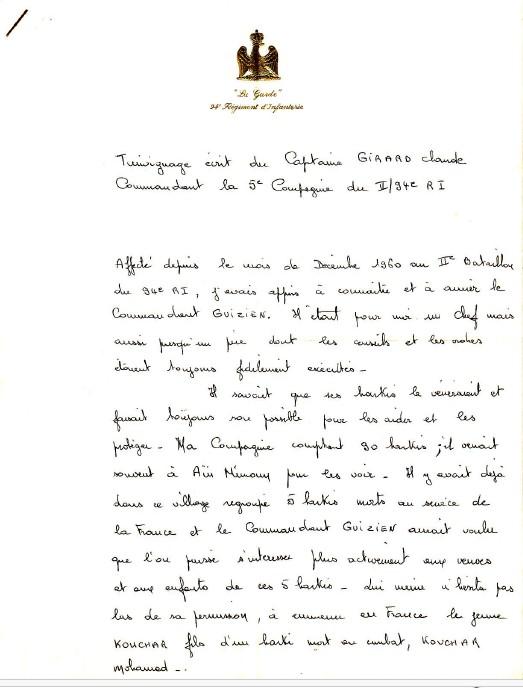 "La Garde"
94e Régiment d'Infanterie
Témoignage écrit du Capitaine GIRARD Claude
Commandant la 5e Compagnie du II/94e RI
Affecté depuis le mois de Décembre 1960 au IIe Bataillon
du 94e RI, j'avais appris à connaître et à aimer le
Commandant GUIZIEN. Il était pour moi un chef mais
aussi presqu'un père dont les conseils et les ordres
étaient toujours fidèlement exécutés -
Il savait que ses harkis le vénéraient et
faisait toujours son possible pour les aider et les
protéger - Ma Compagnie comptant 90 harkis ; il venait
souvent à Aïn Mimoun pour les voir - Il y avait déjà
dans ce village regroupé 5 harkis morts au service de
la France et le Commandant GUIZIEN aurait voulu
que l'on puisse s'intéresser plus activement aux veuves
et aux enfants de ces 5 harkis - Lui même n'hésita pas
lors de sa permission, à emmener en France le jeune
KOUCHAR fils d'un harki mort au combat, KOUCHAR
Mohamed -.